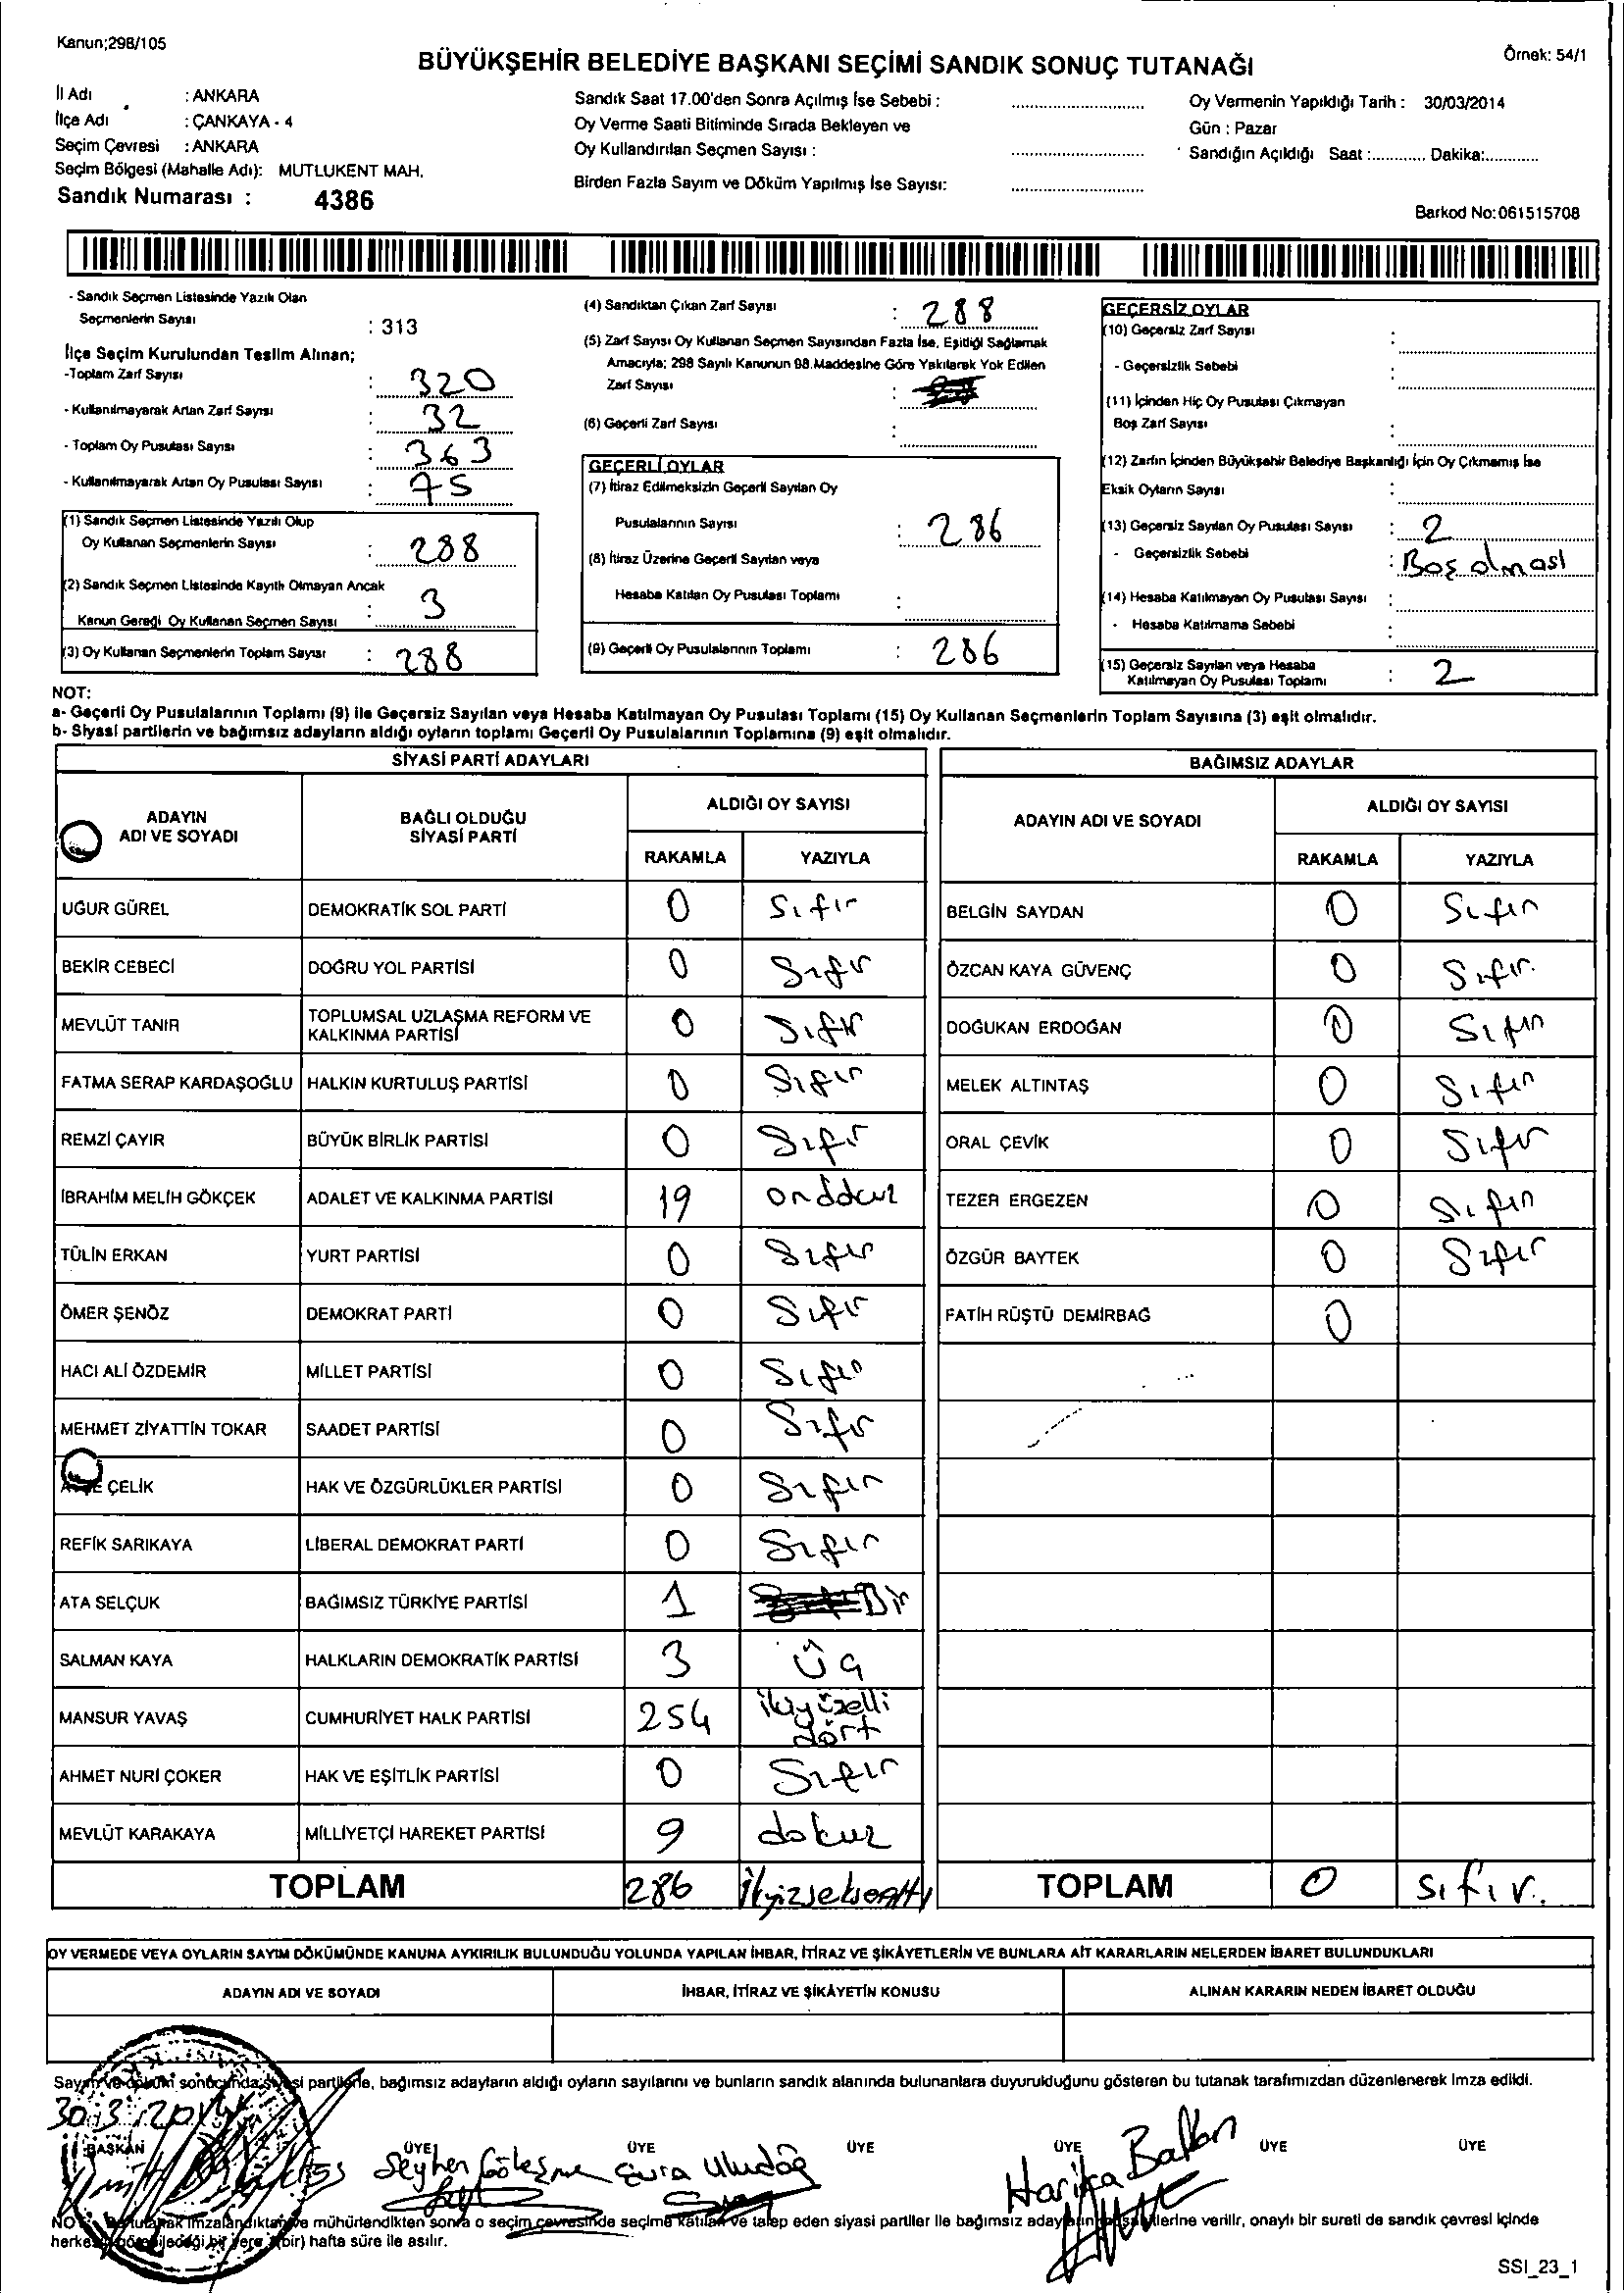 Kanun;298/105
BÜYÜKŞEHİR BELEDİYE BAŞKANI SEÇİMİ SANDIK SONUÇ TUTANAĞI
Örnek: 54/1
İl Adı : ANKARA
İlçe Adı : ÇANKAYA - 4
Seçim Çevresi : ANKARA
Seçim Bölgesi (Mahalle Adı): MUTLUKENT MAH.
Sandık Numarası : 4386
Sandık Saat 17.00'den Sonra Açılmış İse Sebebi :
Oy Verme Saati Bitiminde Sırada Bekleyen ve
Oy Kullandırılan Seçmen Sayısı :
Birden Fazla Sayım ve Döküm Yapılmış İse Sayısı:
Oy Vermenin Yapıldığı Tarih : 30/03/2014
Gün : Pazar
Sandığın Açıldığı Saat :............ Dakika:...........
Barkod No:061515708
- Sandık Seçmen Listesinde Yazılı Olan
Seçmenlerin Sayısı : 313
İlçe Seçim Kurulundan Teslim Alınan;
-Toplam Zarf Sayısı : 320
- Kullanılmayarak Artan Zarf Sayısı : 32
- Toplam Oy Pusulası Sayısı : 363
- Kullanılmayarak Artan Oy Pusulası Sayısı : 75
(1) Sandık Seçmen Listesinde Yazılı Olup
Oy Kullanan Seçmenlerin Sayısı : 288
(2) Sandık Seçmen Listesinde Kayıtlı Olmayan Ancak
Kanun Gereği Oy Kullanan Seçmen Sayısı : 3
(3) Oy Kullanan Seçmenlerin Toplam Sayısı : 288
(4) Sandıktan Çıkan Zarf Sayısı : 288
(5) Zarf Sayısı Oy Kullanan Seçmen Sayısından Fazla İse, Eşitliği Sağlamak
Amacıyla; 298 Sayılı Kanunun 98.Maddesine Göre Yakılarak Yok Edilen
Zarf Sayısı :
(6) Geçerli Zarf Sayısı :
GEÇERLİ OYLAR
(7) İtiraz Edilmeksizin Geçerli Sayılan Oy
Pusulalarının Sayısı : 286
(8) İtiraz Üzerine Geçerli Sayılan veya
Hesaba Katılan Oy Pusulası Toplamı :
(9) Geçerli Oy Pusulalarının Toplamı : 286
GEÇERSİZ OYLAR
(10) Geçersiz Zarf Sayısı :
- Geçersizlik Sebebi :
(11) İçinden Hiç Oy Pusulası Çıkmayan
Boş Zarf Sayısı :
(12) Zarfın İçinden Büyükşehir Belediye Başkanlığı İçin Oy Çıkmamış İse
Eksik Oyların Sayısı :
(13) Geçersiz Sayılan Oy Pusulası Sayısı : 2
- Geçersizlik Sebebi : Boş olması
(14) Hesaba Katılmayan Oy Pusulası Sayısı :
- Hesaba Katılmama Sebebi :
(15) Geçersiz Sayılan veya Hesaba
Katılmayan Oy Pusulası Toplamı : 2
NOT:
a- Geçerli Oy Pusulalarının Toplamı (9) ile Geçersiz Sayılan veya Hesaba Katılmayan Oy Pusulası Toplamı (15) Oy Kullanan Seçmenlerin Toplam Sayısına (3) eşit olmalıdır.
b- Siyasi partilerin ve bağımsız adayların aldığı oyların toplamı Geçerli Oy Pusulalarının Toplamına (9) eşit olmalıdır.
SİYASİ PARTİ ADAYLARI
ADAYIN ADI VE SOYADI BAĞLI OLDUĞU SİYASİ PARTİ ALDIĞI OY SAYISI
RAKAMLA YAZIYLA
UĞUR GÜREL DEMOKRATİK SOL PARTİ 0 Sıfır
BEKİR CEBECİ DOĞRU YOL PARTİSİ 0 Sıfır
MEVLÜT TANIR TOPLUMSAL UZLAŞMA REFORM VE KALKINMA PARTİSİ 0 Sıfır
FATMA SERAP KARDAŞOĞLU HALKIN KURTULUŞ PARTİSİ 0 Sıfır
REMZİ ÇAYIR BÜYÜK BİRLİK PARTİSİ 0 Sıfır
İBRAHİM MELİH GÖKÇEK ADALET VE KALKINMA PARTİSİ 19 ondokuz
TÜLİN ERKAN YURT PARTİSİ 0 Sıfır
ÖMER ŞENÖZ DEMOKRAT PARTİ 0 Sıfır
HACI ALİ ÖZDEMİR MİLLET PARTİSİ 0 Sıfır
MEHMET ZİYATTİN TOKAR SAADET PARTİSİ 0 Sıfır
ÇELİK HAK VE ÖZGÜRLÜKLER PARTİSİ 0 Sıfır
REFİK SARIKAYA LİBERAL DEMOKRAT PARTİ 0 Sıfır
ATA SELÇUK BAĞIMSIZ TÜRKİYE PARTİSİ 1 Bir
SALMAN KAYA HALKLARIN DEMOKRATİK PARTİSİ 3 Üç
MANSUR YAVAŞ CUMHURİYET HALK PARTİSİ 254 ikiyüzelli dört
AHMET NURİ ÇOKER HAK VE EŞİTLİK PARTİSİ 0 Sıfır
MEVLÜT KARAKAYA MİLLİYETÇİ HAREKET PARTİSİ 9 dokuz
TOPLAM 286
BAĞIMSIZ ADAYLAR
ADAYIN ADI VE SOYADI ALDIĞI OY SAYISI
RAKAMLA YAZIYLA
BELGİN SAYDAN 0 Sıfır
ÖZCAN KAYA GÜVENÇ 0 Sıfır.
DOĞUKAN ERDOĞAN 0 Sıfır
MELEK ALTINTAŞ 0 Sıfır
ORAL ÇEVİK 0 Sıfır
TEZER ERGEZEN 0 Sıfır
ÖZGÜR BAYTEK 0 Sıfır
FATİH RÜŞTÜ DEMİRBAĞ 0
TOPLAM 0 sıfır.
OY VERMEDE VEYA OYLARIN SAYIM DÖKÜMÜNDE KANUNA AYKIRILIK BULUNDUĞU YOLUNDA YAPILAN İHBAR, İTİRAZ VE ŞİKÂYETLERİN VE BUNLARA AİT KARARLARIN NELERDEN İBARET BULUNDUKLARI
ADAYIN ADI VE SOYADI İHBAR, İTİRAZ VE ŞİKÂYETİN KONUSU ALINAN KARARIN NEDEN İBARET OLDUĞU
Sayım ve döküm sonucunda siyasi partilerle, bağımsız adayların aldığı oyların sayılarını ve bunların sandık alanında bulunanlara duyurulduğunu gösteren bu tutanak tarafımızdan düzenlenerek imza edildi.
30.3.2014
BAŞKAN ÜYE ÜYE ÜYE ÜYE ÜYE ÜYE
Seyhen Esra Uludağ Harika Balkan
NOT: Bu tutanak imzalandıktan ve mühürlendikten sonra o seçim çevresinde seçime katılan ve talep eden siyasi partiler ile bağımsız adayların verilir, onaylı bir sureti de sandık çevresi içinde
herkesin görebileceği bir yere 1(bir) hafta süre ile asılır.
SSI_23_1